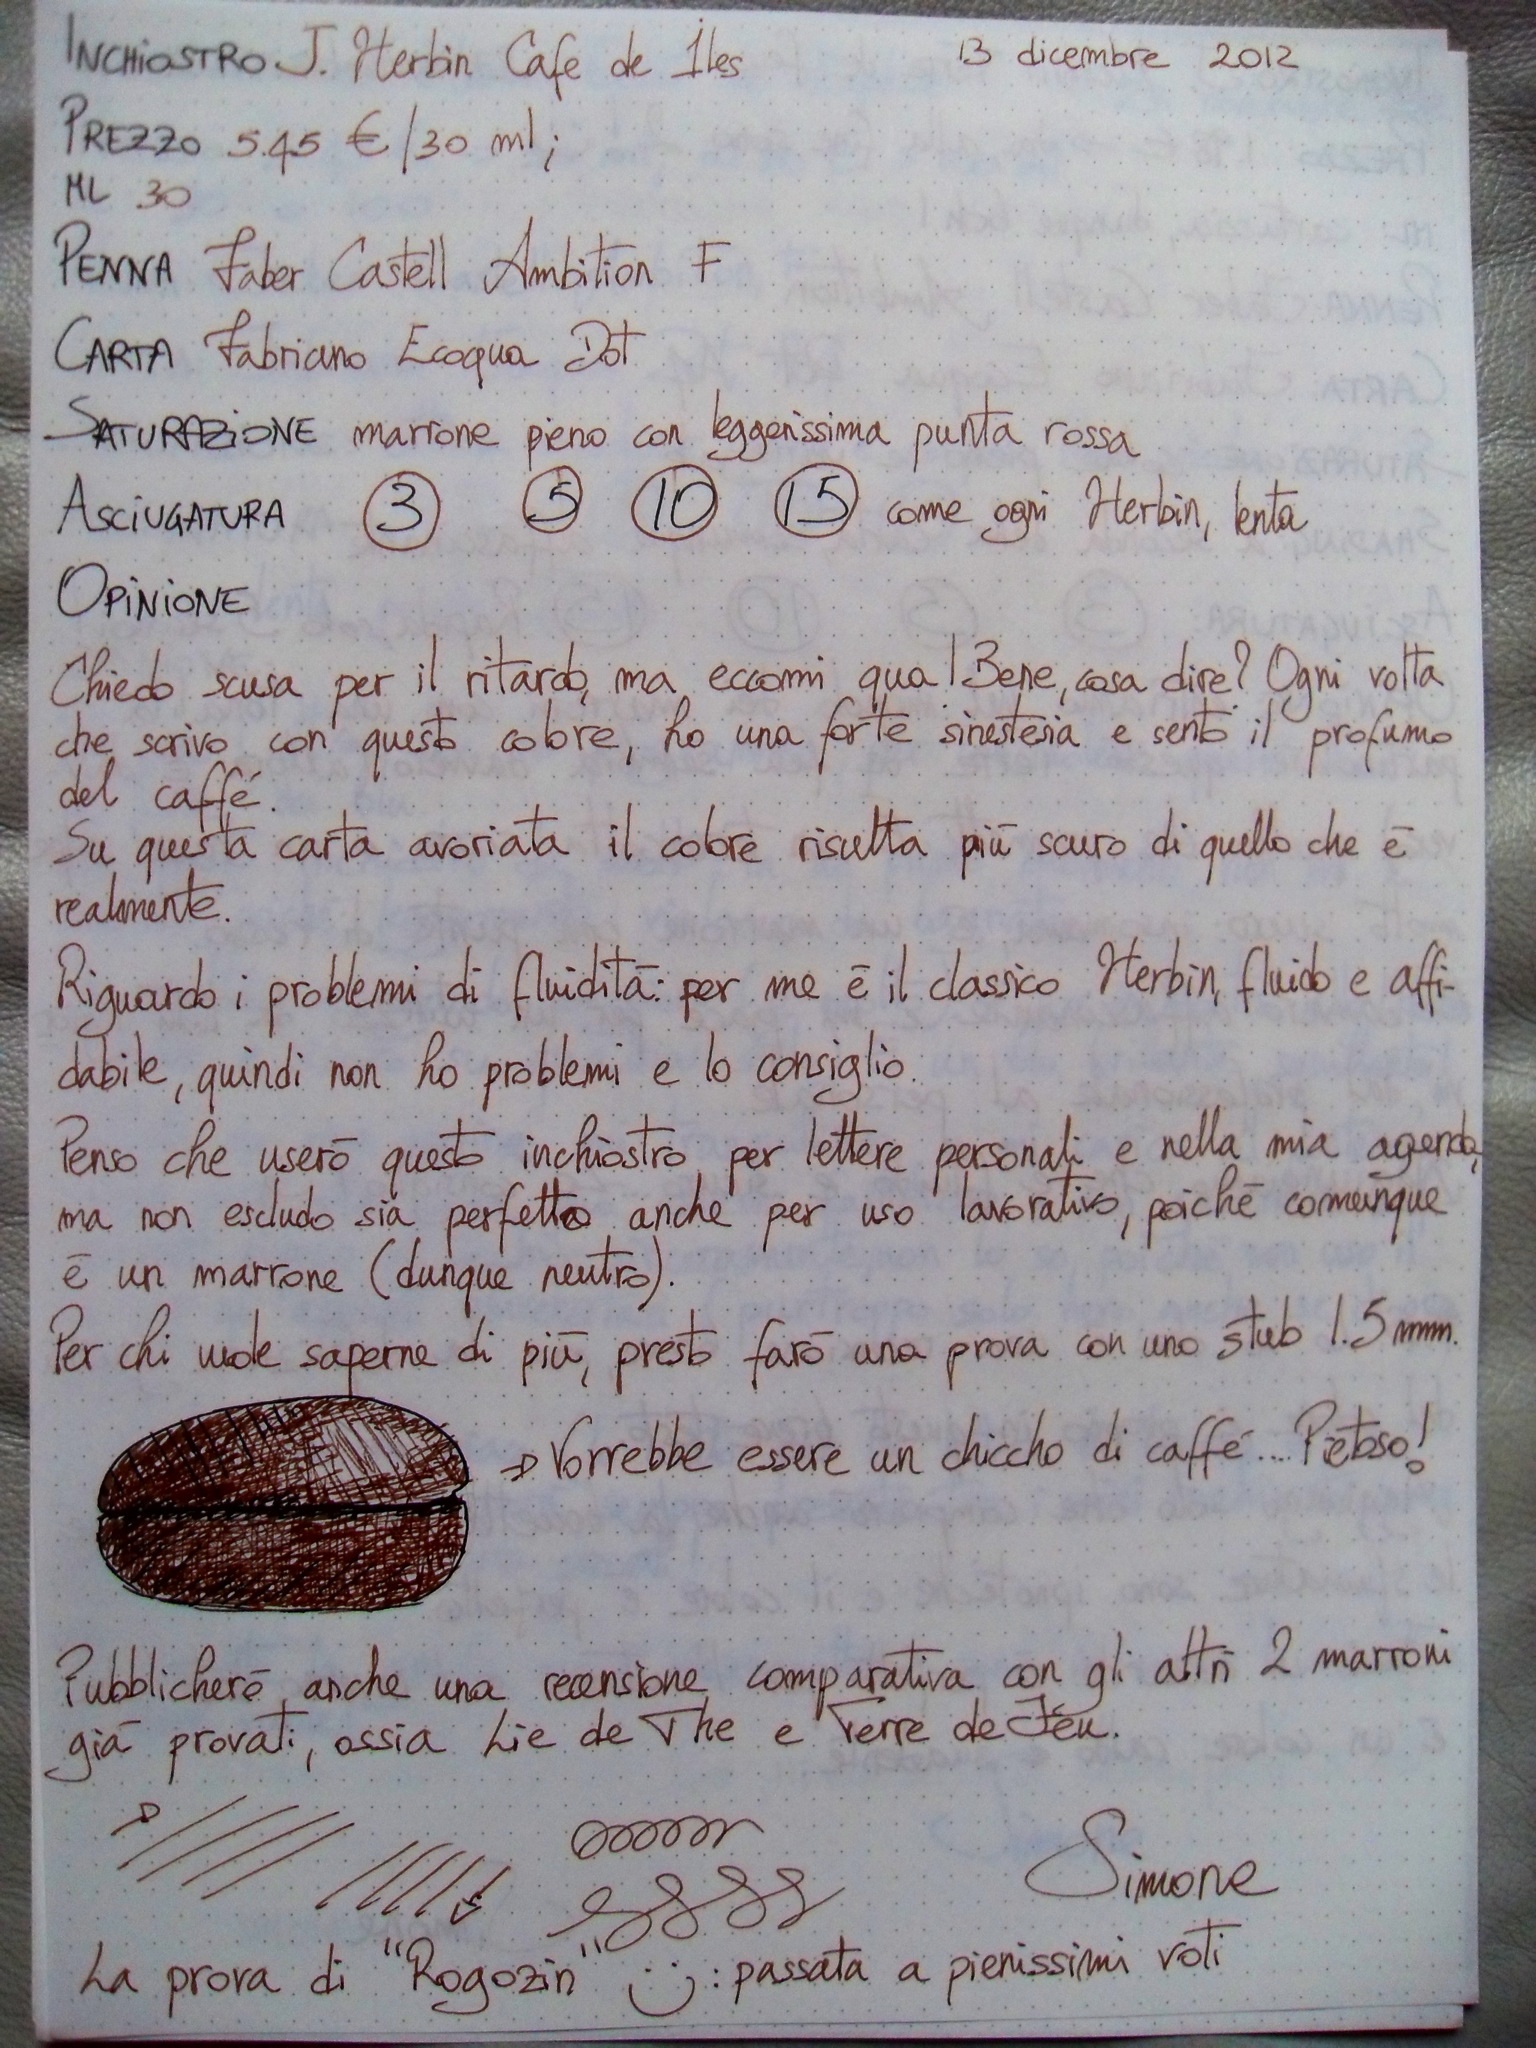 INCHIOSTRO J. Herbin Cafe de Iles 13 dicembre 2012
PREZZO 5.45 €/30 ml;
ML 30
PENNA Faber Castell Ambition F
CARTA Fabriano Ecoqua Dot
SATURAZIONE marrone pieno con leggerissima punta rossa
ASCIUGATURA 3 5 10 15 come ogni Herbin, lenta
OPINIONE
Chiedo scusa per il ritardo, ma eccomi qua! Bene, cosa dire? Ogni volta
che scrivo con questo colore, ho una forte sinestesia e sento il profumo
del caffé.
Su questa carta avoriata il colore risulta più scuro di quello che è
realmente.
Riguardo i problemi di fluidità: per me è il classico Herbin, fluido e affi-
dabile, quindi non ho problemi e lo consiglio.
Penso che userò questo inchiostro per lettere personali e nella mia agenda,
ma non escludo sia perfetto anche per uso lavorativo, poiché comunque
è un marrone (dunque neutro).
Per chi vuole saperne di più, presto farò una prova con uno stub 1.5 mm.
Vorrebbe essere un chiccho di caffé.... Pietoso!
Pubblicherò anche una recensione comparativa con gli altri 2 marroni
già provati, ossia Lie de The e Terre de Feu.
Simone
La prova di "Rogozin" :) : passata a pienissimi voti